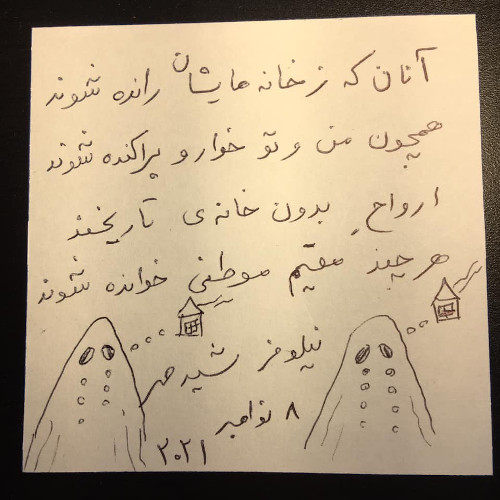 آنان که ز خانه هایشان رانده شوند
همچون من و تو خوار و پراکنده شوند
ارواحِ بدون خانه ی تاریخند
هر چند مقیم موطنی خوانده شوند
نیلوفر شیدمهر
۸ نوامبر
۲۰۲۱